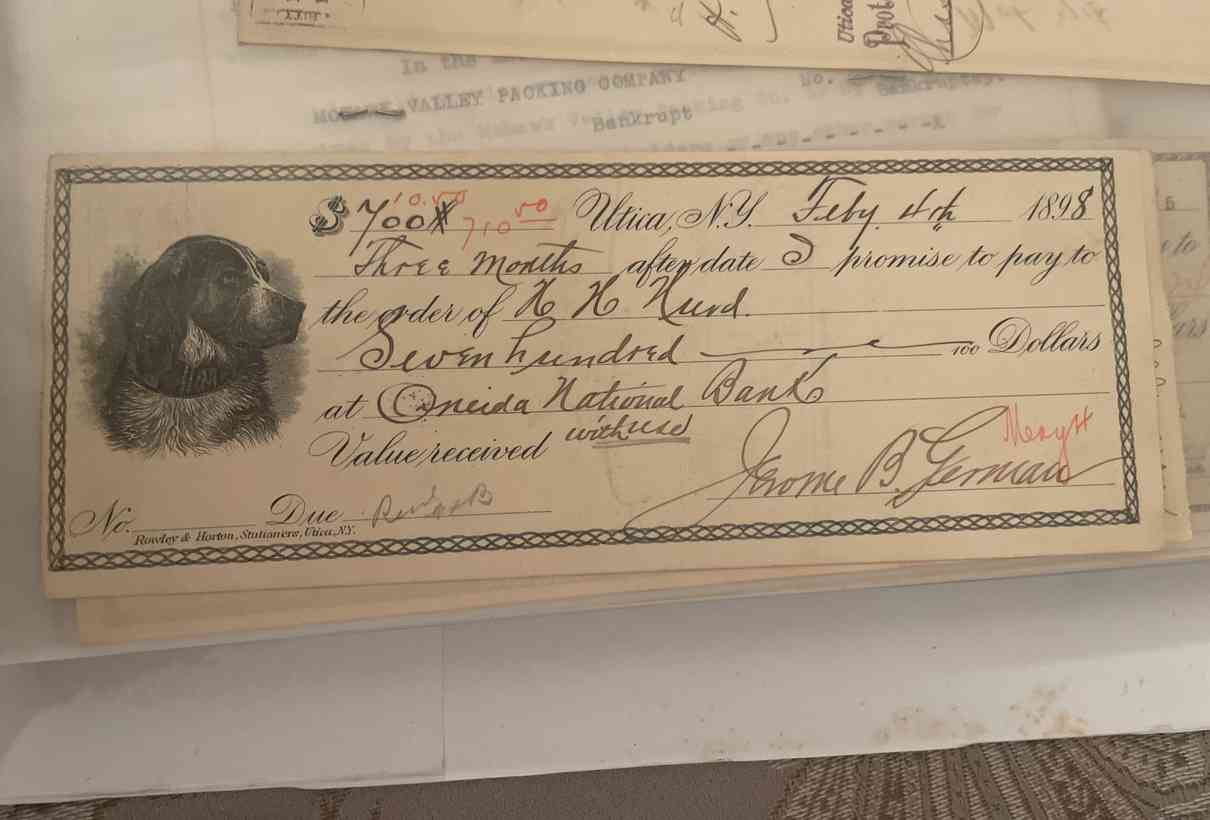 XXIII.
Utica
Prot
In the
MOHAWK VALLEY PACKING COMPANY
No.
Bankrupt
Bankruptcy.
10.50
$ 700 710 50 Utica, N.Y. Feby. 4th 1898
Three Months after date I promise to pay to
the order of H H Hurd.
Seven hundred 100 Dollars
at Oneida National Bank
Value received with use
May 4
Jerome B. German
No. Due
Rowley & Horton, Stationers, Utica, N.Y.